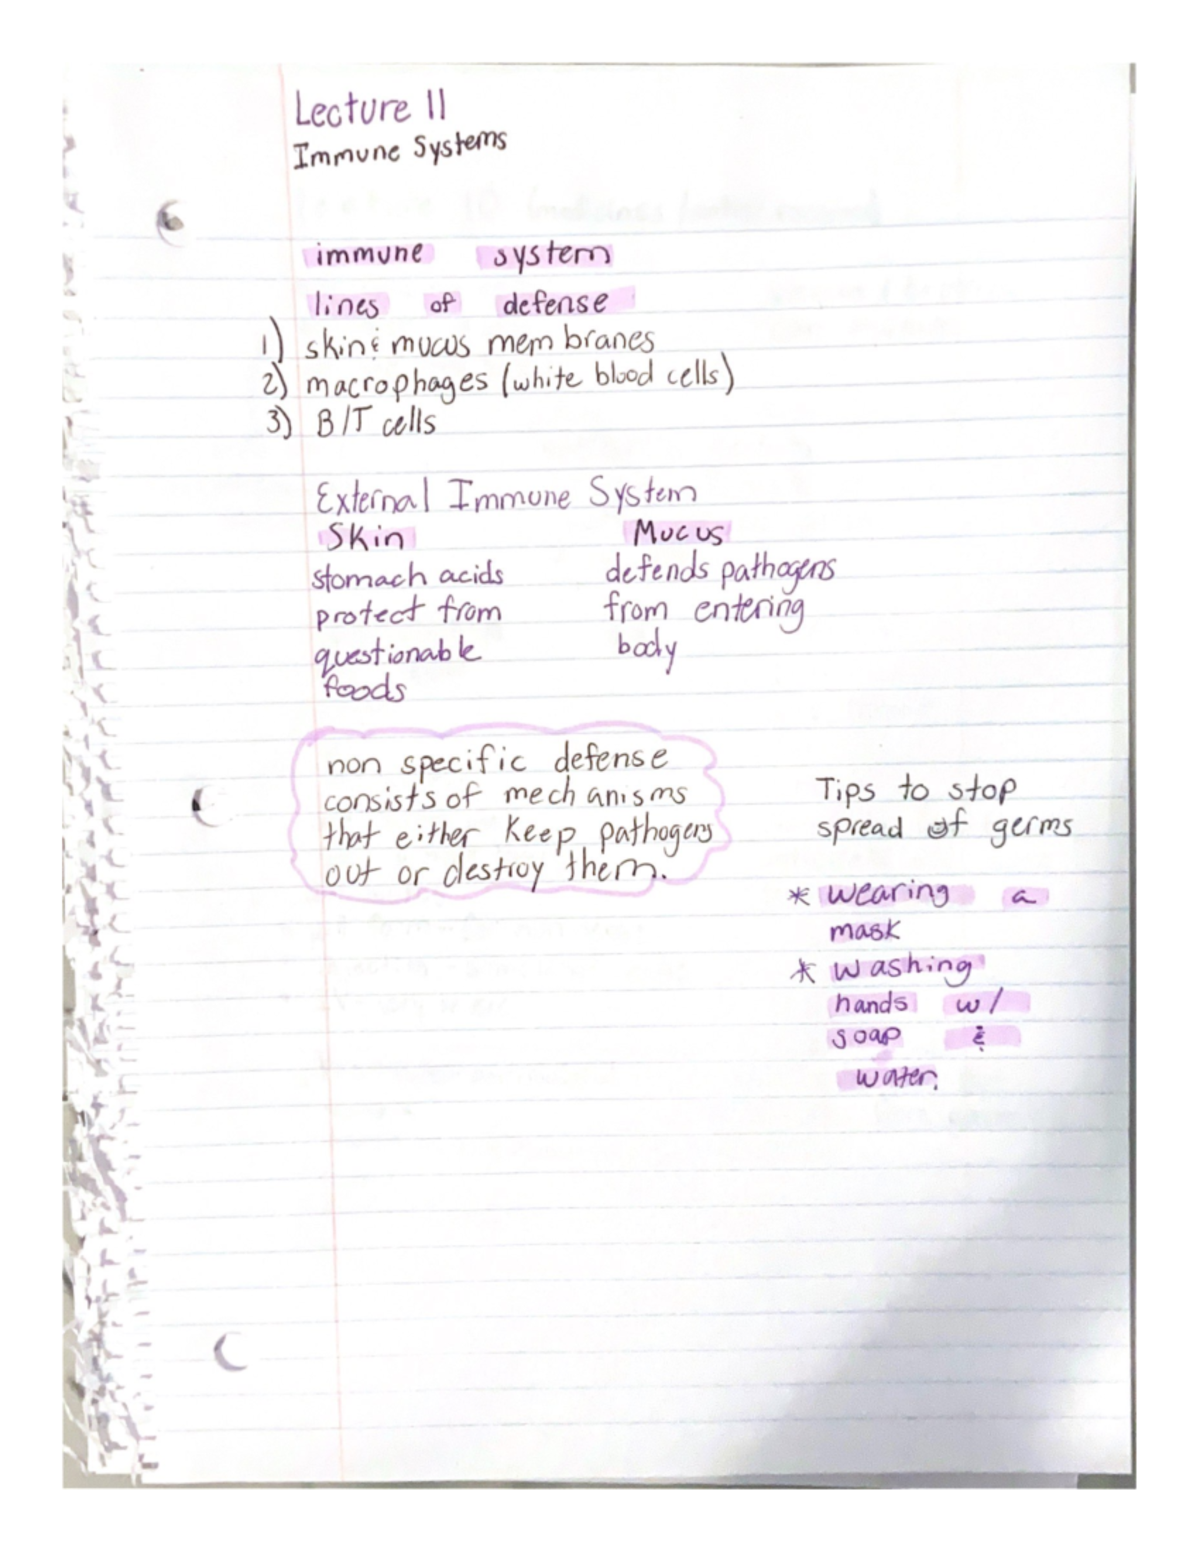 Lecture 11
Immune Systems
immune system
lines of defense
1) skin & mucus membranes
2) macrophages (white blood cells)
3) B/T cells
External Immune System
Skin
stomach acids
protect from
questionable
foods
Mucus
defends pathogens
from entering
body
non specific defense
consists of mechanisms
that either keep pathogens
out or destroy them.
Tips to stop
spread of germs
* wearing a
mask
* washing
hands w/
soap &
water.